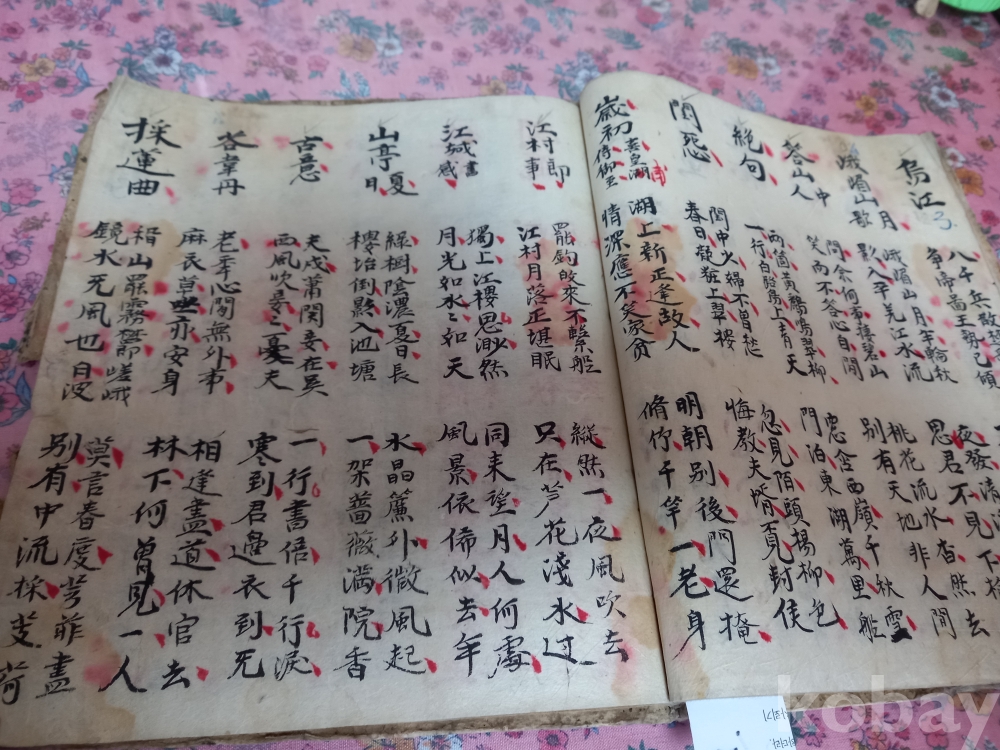 烏江
3
八千兵散楚
爭帝啚王勢已傾
峨嵋山月歌
峨嵋山月半輪秋
影入平羌江水流
夜發清
思君不見下
答山中人
問余何事棲碧山
笑而不答心自閒
桃花流水杳然去
別有天地非人間
絕句
兩箇黃鸝鳴翠柳
一行白鷺上青天
窓含西嶺千秋雪
門泊東湖萬里船
閨怨
閨中少婦不曾愁
春日凝粧上翠樓
忽見陌頭楊柳色
悔教夫婿覓封侯
歲初喜皇湖南侍御至
湖上新正逢故人
情深應不笑家貧
明朝別後門還掩
脩竹千竿一老身
江村即事
罷釣歸來不繫船
江村月落正堪眠
縱然一夜風吹去
只在芦花淺水边
江城書感
獨上江樓思渺然
月光如水水如天
同來望月人何處
風景依俙似去年
山亭夏日
綠樹陰濃夏日長
樓坮倒影入池塘
水晶簾外微風起
一架薔薇滿院香
古意
夫戍蕭關妾在吳
西風吹妾妾憂夫
一行書信千行淚
寒到君邊衣到无
答韋丹
老季心閒無外事
麻衣草坐亦安身
相逢盡道休官去
林下何曾見一人
採蓮曲
稽山罷霧鬱嵯峨
鏡水无風也自波
莫言春度芳菲盡
別有中流採芰荷
kobay